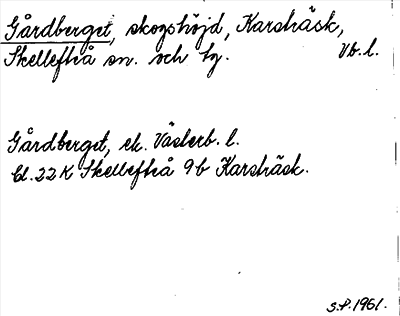 Gårdberget, skogshöjd, Karsträsk,
Skellefteå sn. och tg. Vb.l.
Gårdberget, ek. Västerb. l.
bl. 22K Skellefteå 9b Karsträsk.
S.P. 1961.